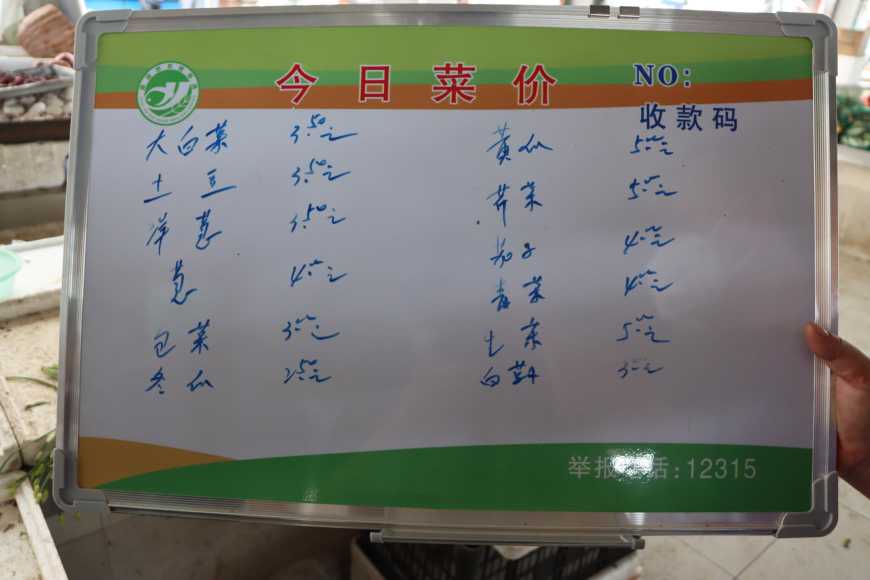 今日菜价
NO:
收款码
大白菜 3.50元
土豆 3.50元
洋葱 3.50元
葱 4.00元
包菜 3.00元
冬瓜 2.50元
黄瓜 5.00元
芹菜 5.00元
茄子 4.00元
青菜 4.00元
5.00元
白 3.00元
举报 话:12315